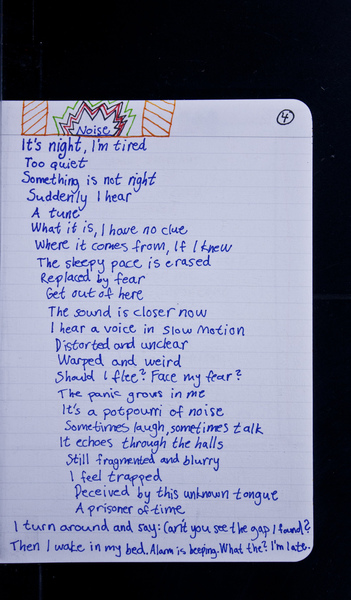 4
Noise
It's night, I'm tired
Too quiet
Something is not right
Suddenly I hear
A tune
What it is, I have no clue
Where it comes from, If I knew
The sleepy pace is erased
Replaced by fear
Get out of here
The sound is closer now
I hear a voice in slow motion
Distorted and unclear
Warped and weird
Should I flee? Face my fear?
The panic grows in me
It's a potpourri of noise
Sometimes laugh, sometimes talk
It echoes through the halls
Still fragmented and blurry
I feel trapped
Deceived by this unknown tongue
A prisoner of time
I turn around and say: Can't you see the gap I found?
Then I wake in my bed. Alarm is beeping. What the? I'm late.